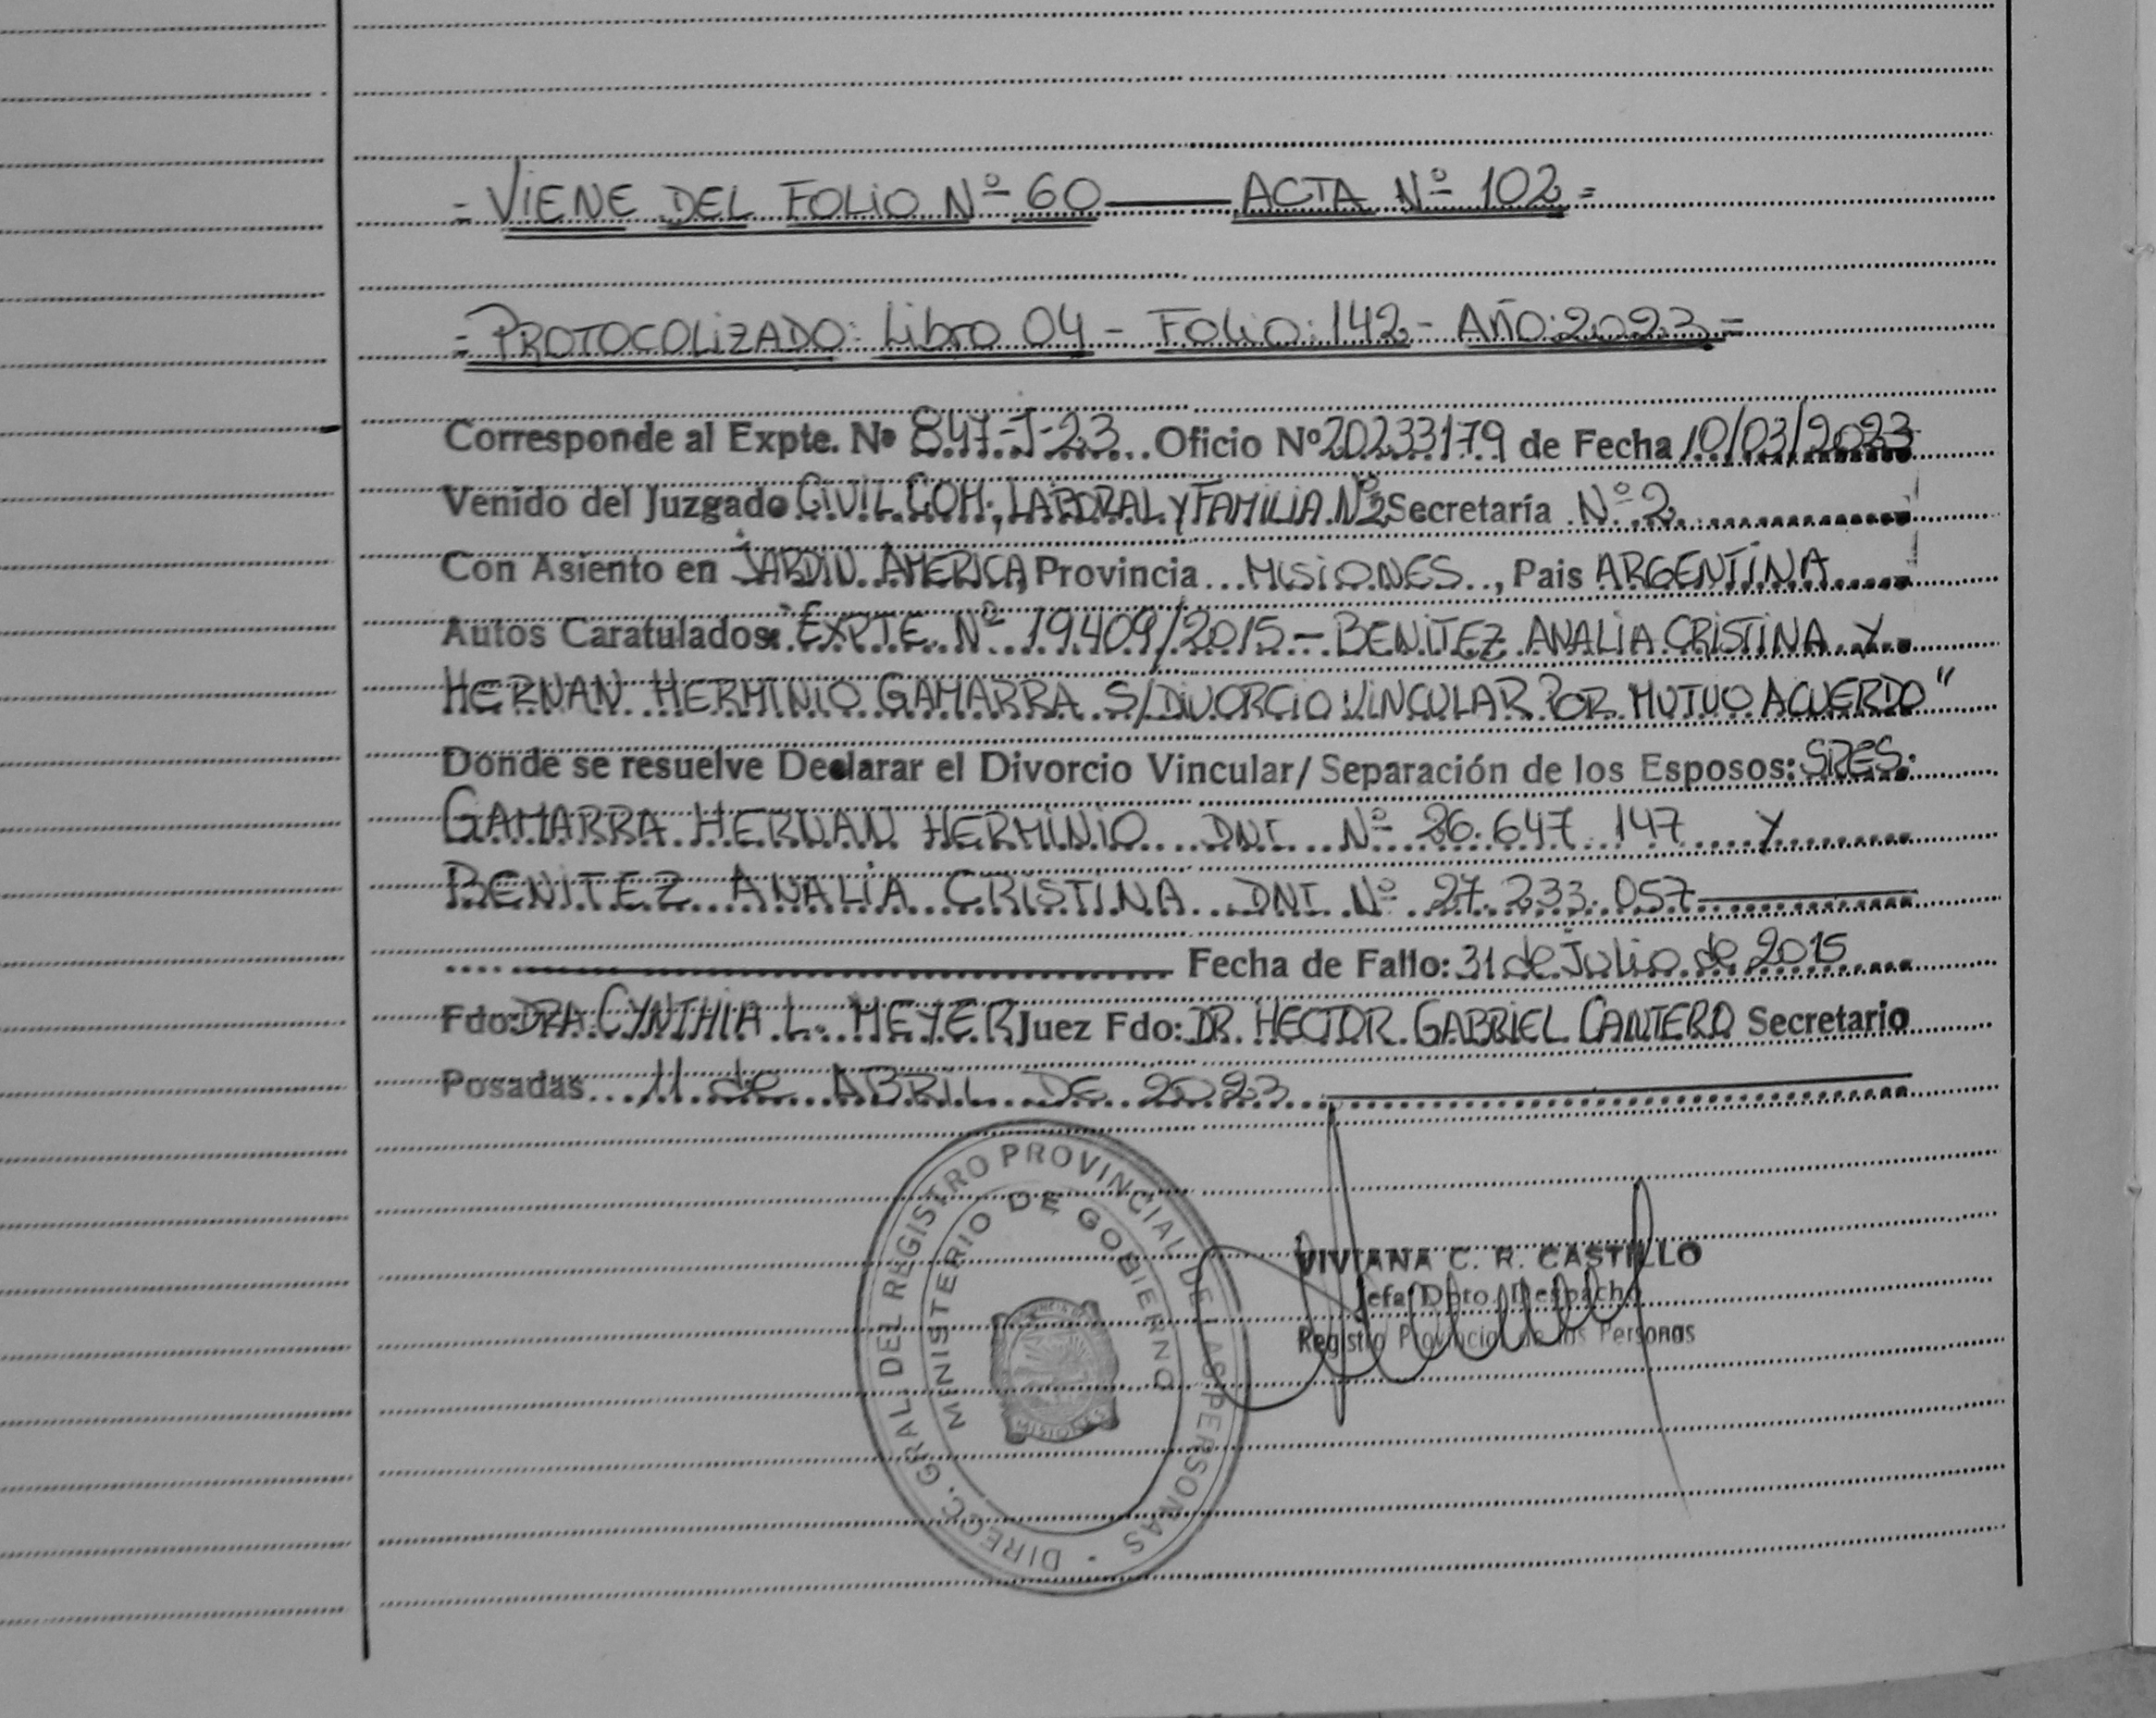 = VIENE DEL FOLIO Nº 60 —— ACTA Nº 102 =
= PROTOCOLIZADO: Libro 04 - Folio: 142 - Año: 2023 =
Corresponde al Expte. Nº 847-J-23 Oficio Nº 20233179 de Fecha 10/03/2023
Venido del Juzgado CIVIL, COM., LABORAL Y FAMILIA Nº2 Secretaría Nº 2
Con Asiento en JARDIN AMERICA, Provincia MISIONES, Pais ARGENTINA
Autos Caratulados: "EXPTE Nº 19409/2015 - BENITEZ ANALIA CRISTINA Y
HERNAN HERMINIO GAMARRA S/DIVORCIO VINCULAR POR MUTUO ACUERDO"
Donde se resuelve Declarar el Divorcio Vincular/ Separación de los Esposos: SRES.
GAMARRA HERNAN HERMINIO DNI Nº 26.647.147 Y
BENITEZ ANALIA CRISTINA DNI Nº 27.233.057
Fecha de Fallo: 31 de Julio de 2015
Fdo: DRA CYNTHIA L. MEYER Juez Fdo: DR. HECTOR GABRIEL CANTERO Secretario
Posadas 11 de ABRIL DE 2023
DIRECC. GRAL. DEL REGISTRO PROVINCIAL DE LAS PERSONAS
MINISTERIO DE GOBIERNO
MISIONES
VIVIANA C. R. CASTILLO
Jefa Dpto. Despacho
Registro Provincial de las Personas